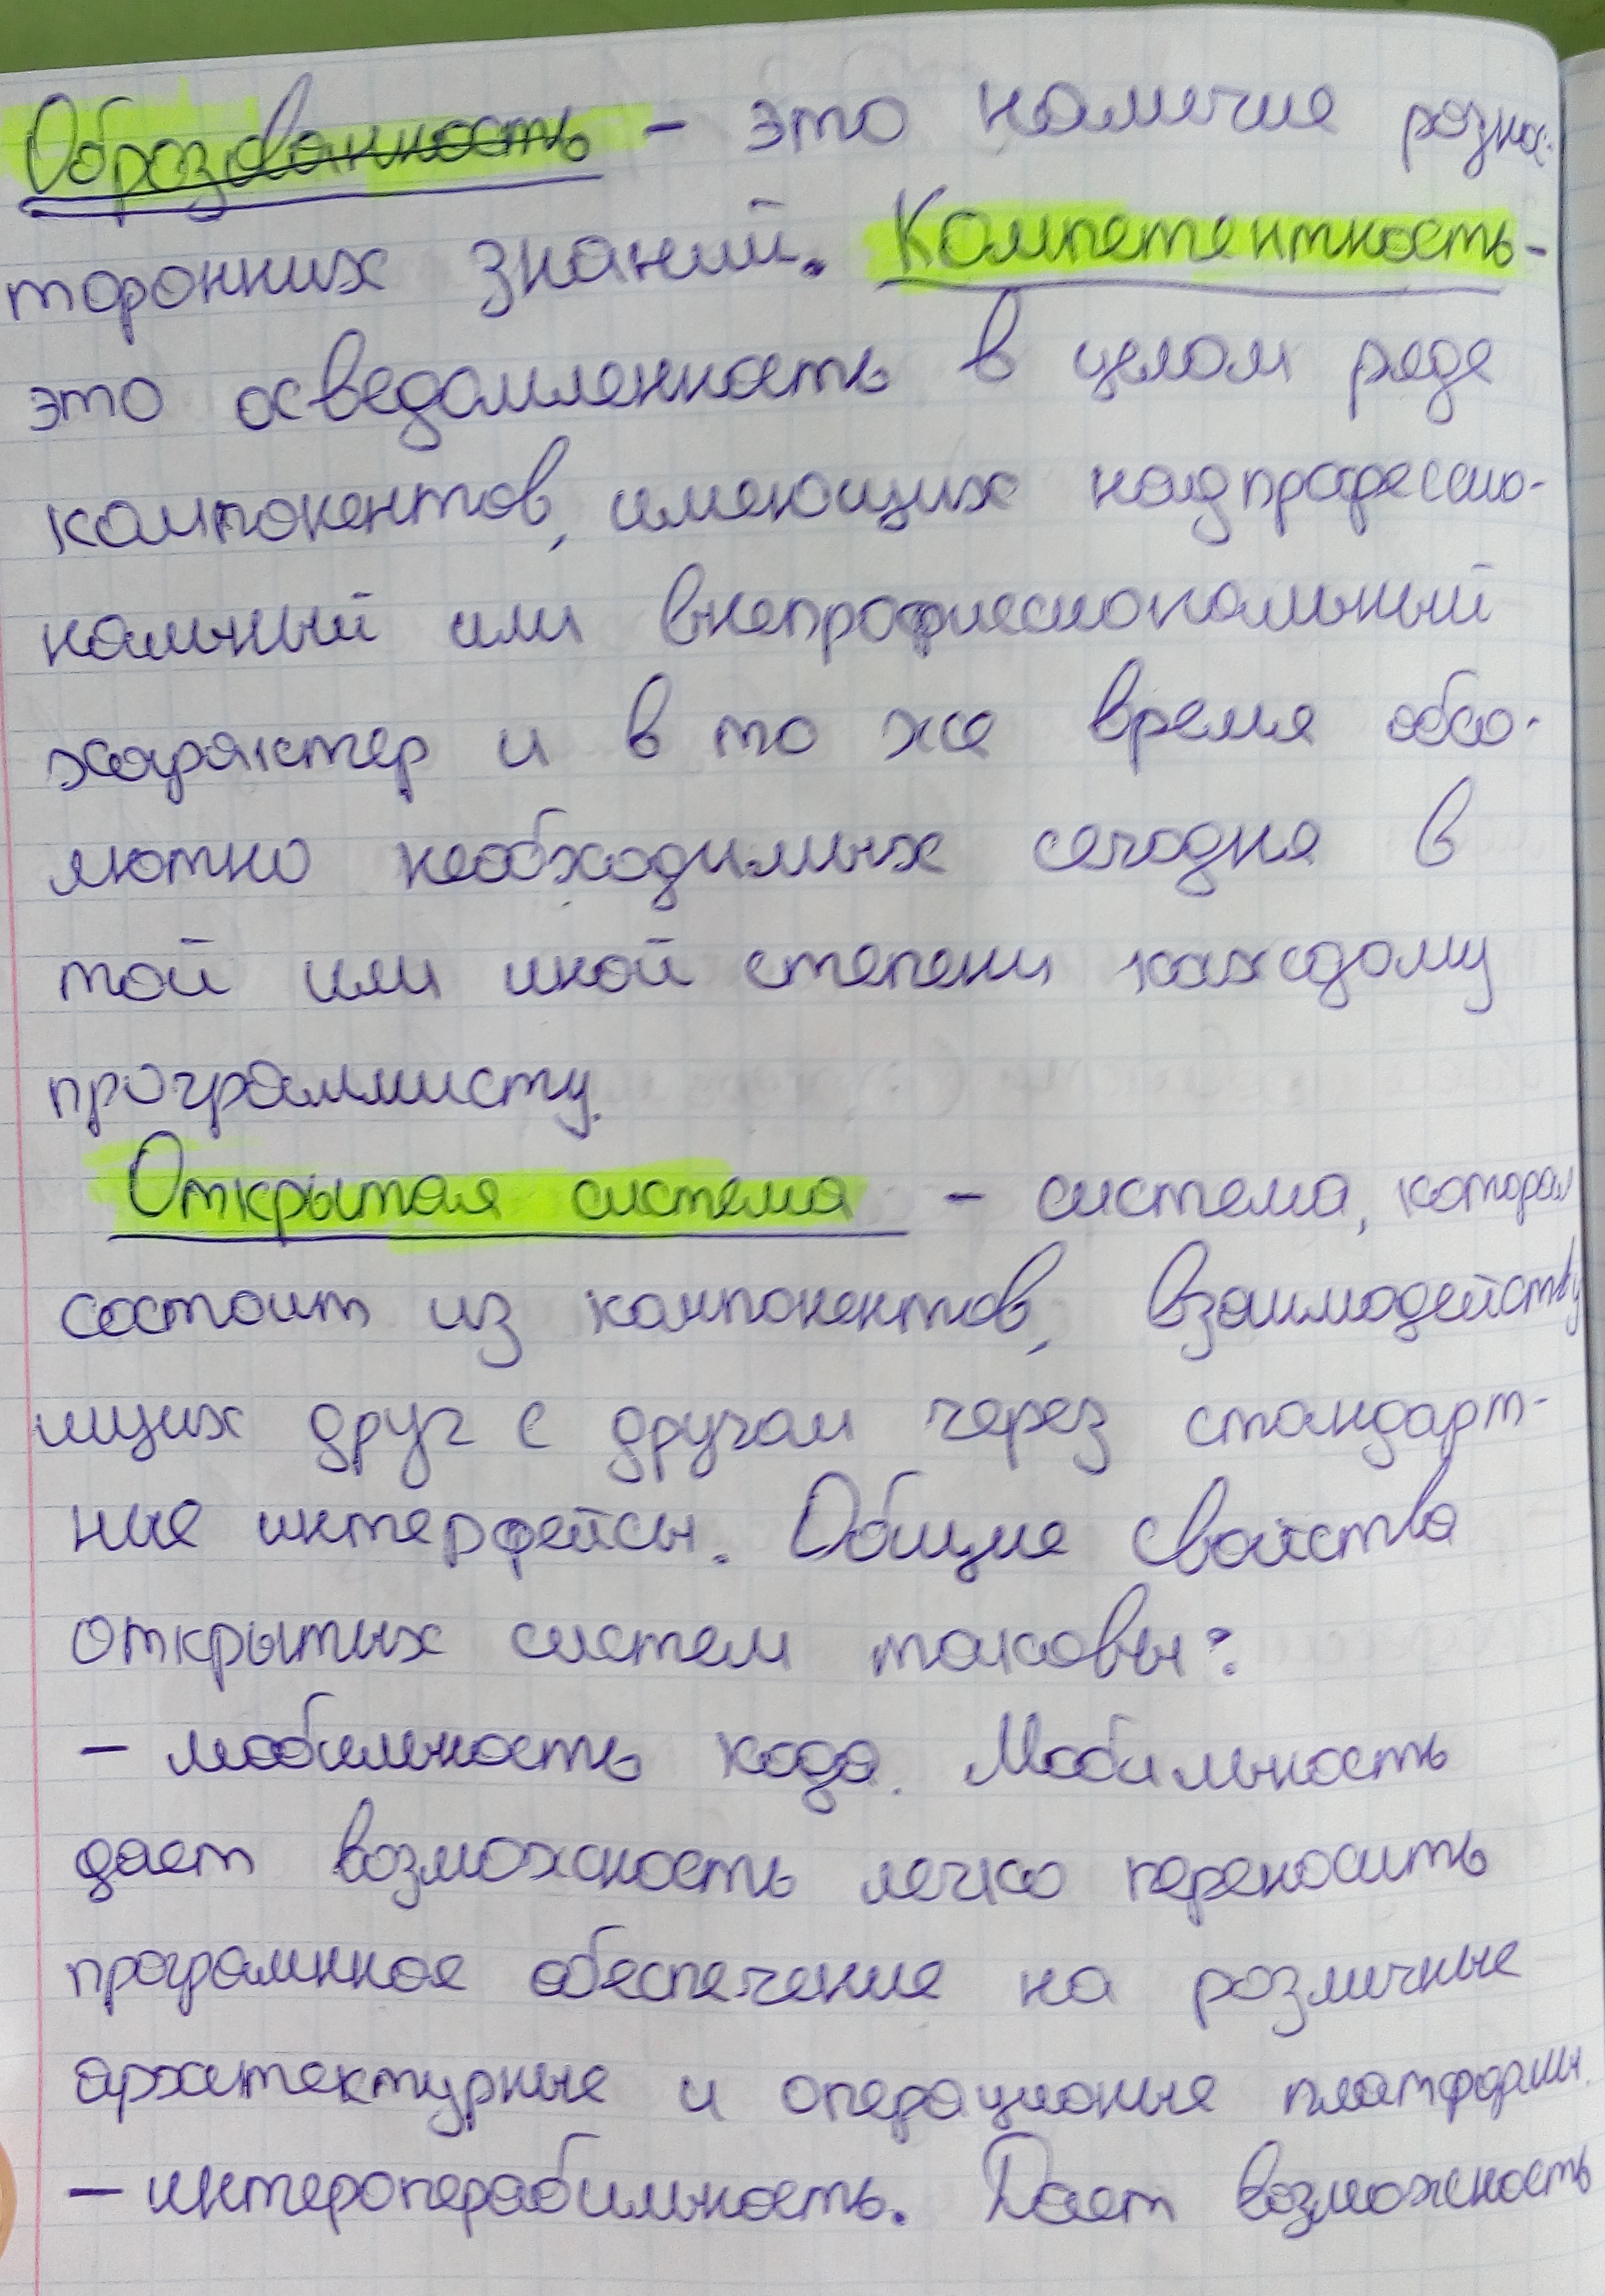 Образованность - это наличие разнос-
торонних знаний. Компетентность -
это осведомленность в целом ряде
компонентов, имеющих надпрофессио-
нальный или внепрофиессиональный
характер и в то же время абсо-
лютно необходимых сегодня в
той или иной степени каждому
программисту.
Открытая система - система, которая
состоит из компонентов, взаимодейству
ющих друг с другом через стандарт-
ные интерфейсы. Общие свойства
открытых систем таковы:
- мобильность кода. Мобильность
дает возможность легко переносить
программное обеспечение на различные
архитектурные и операционые платформы.
- интероперабильность. Дает возможность